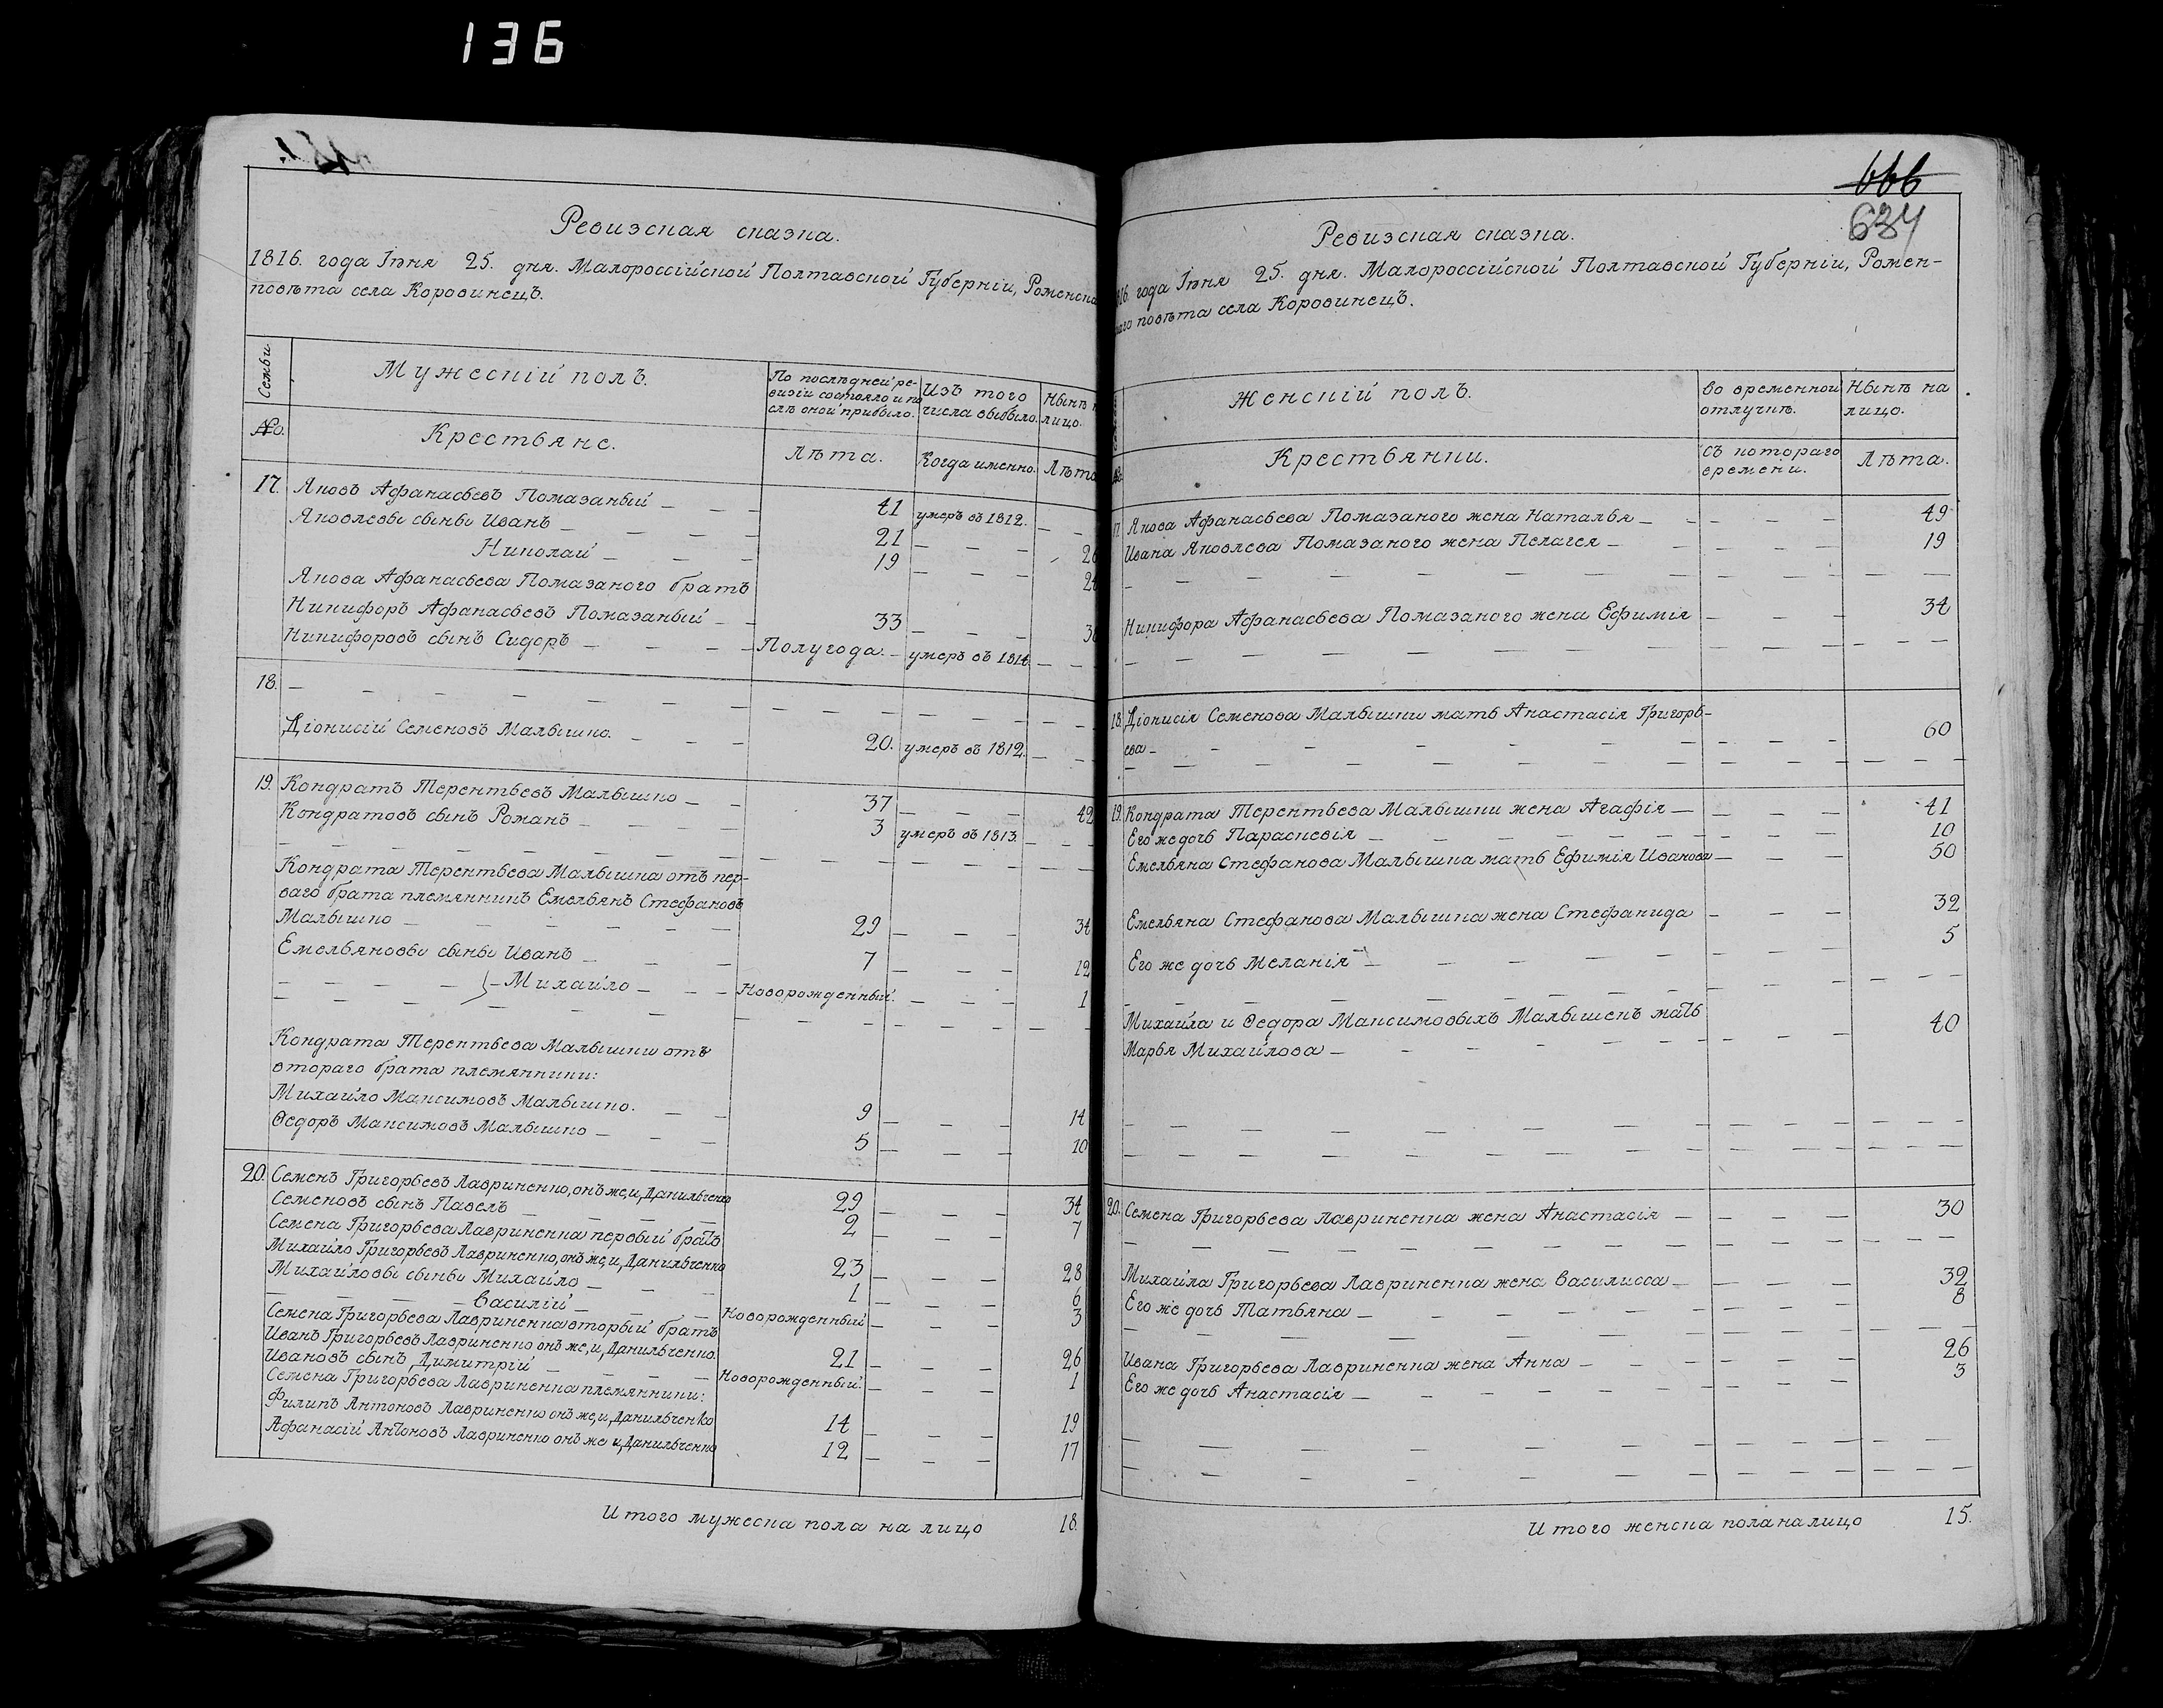 136
Ревизская сказка.
1816. года Іюня 25. дня. Малороссійской Полтавской Губерніи, Роменска
повѣта села Коровинецъ.
Семьи
Мужескій полъ.
По послѣдней ре-
визіи состояло и по
слѣ оной прибыло.
Изъ того
числа выбыло.
Нынѣ н
лицо.
№.
Крестьяне.
Лѣта.
Когда именно.
Лѣта
17. Яковъ Афанасьевъ Помазаный — — — 41 умеръ въ 1812. — —
Яковлевы сыны Иванъ — — — — 21 — — — 26
Николай — — — 19 — — — 24
Якова Афанасьева Помазаного братъ
Никифоръ Афанасьевъ Помазаный — — 33 — — — 38
Никифоровъ сынъ Сидоръ — — — — Полугода. — умеръ въ 1814. — —
18. — — — — — — — — — — — — — —
Діонисій Семеновъ Малышко. — — — 20. умеръ въ 1812. — —
19. Кондратъ Терентьевъ Малышко — — 37 — — — 42
Кондратовъ сынъ Романъ — — — — 3 умеръ въ 1813. — — —
Кондрата Терентьева Малышка отъ пер-
ваго брата племянникъ Емельянъ Стефановъ
Малышко — — — — — — 29 — — — 34
Емельяновы сыны Иванъ — — — 7 — — — 12
— — — — — Михайло — — — Новорожденный. — — — 1
Кондрата Терентьева Малышки отъ
втораго брата племянники:
Михайло Максимовъ Малышко. — — 9 — — — 14
Ѳедоръ Максимовъ Малышко — — — 5 — — — 10
20. Семенъ Григорьевъ Лавриненко, онъ же, и, Данильченко 29 — — — 34
Семеновъ сынъ Павелъ — — — — 2 — — — 7
Семена Григорьева Лавриненка первый братъ
Михайло Григорьевъ Лавриненко, онъ же, и, Данильченко 23 — — — 28
Михайловы сыны Михайло — — — 1 — — — 6
— — — — Василій — — — Новорожденный — — — 3
Семена Григорьева Лавриненка вторый братъ
Иванъ Григорьевъ Лавриненко онъ же, и, Данильченко. 21 — — — 26
Ивановъ сынъ Димитрій — — — — Новорожденный. — — — 1
Семена Григорьева Лавриненка племянники:
Филипъ Антоновъ Лавриненко онъ же, и, Данильченко 14 — — — 19
Афанасій Антоновъ Лавриненко онъ же и, Данильченко 12 — — — 17
Итого мужеска пола на лицо 18.
666
634
Ревизская сказка.
816. года Іюня 25. дня. Малороссійской Полтавской Губерніи, Ромен-
скаго повѣта села Коровинецъ.
Женскій полъ.
Во временной
отлучкѣ.
Нынѣ на
лицо.
Крестьянки.
Съ котораго
времени.
Лѣта.
17. Якова Афанасьева Помазаного жена Наталья — — — — 49
Ивана Яковлева Помазаного жена Пелагея — — — — 19
Никифора Афанасьева Помазаного жена Ефимія — — — 34
18. Діонисія Семенова Малышки мать Анастасія Григорь-
ева — — — — — — — — — — 60
19. Кондрата Терентьева Малышки жена Агафія — — — — 41
Его же дочь Параскевія — — — — — — — 10
Емельяна Стефанова Малышка мать Ефимія Иванова — — — 50
Емельяна Стефанова Малышка жена Стефанида — — — 32
Его же дочь Меланія — — — — — — — 5
Михайла и Ѳедора Максимовыхъ Малышекъ мать
Марья Михайлова — — — — — — — — 40
20. Семена Григорьева Лавриненка жена Анастасія — — — — 30
Михайла Григорьева Лавриненка жена Василисса — — — — 32
Его же дочь Татьяна — — — — — — — — 8
Ивана Григорьева Лавриненка жена Анна — — — — — 26
Его же дочь Анастасія — — — — — — — — 3
Итого женска пола на лицо 15.